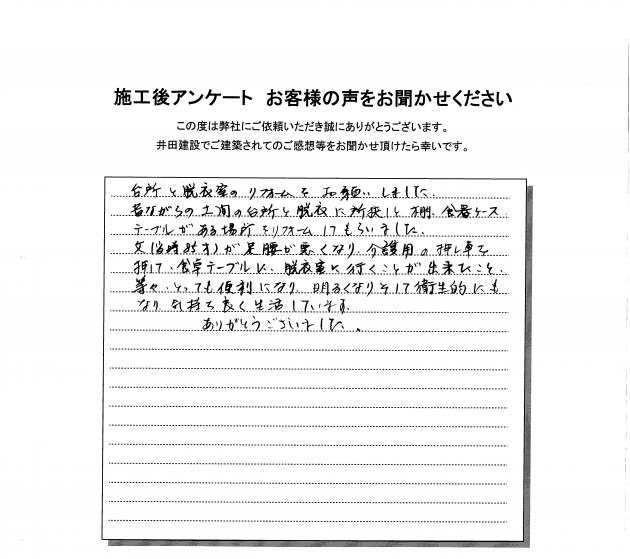 施工後アンケート お客様の声をお聞かせください
この度は弊社にご依頼いただき誠にありがとうございます。
井田建設でご建築されてのご感想等をお聞かせ頂けたら幸いです。
台所と脱衣室のリフォームをお願いしました。
昔ながらの土間の台所と脱衣に所狭しと棚、食器ケース
テーブルがある場所をリフォームしてもらいました。
父(当時85才)が足腰が悪くなり、介護用の押し車を
押して、食卓テーブルに、脱衣室に行くことが出来たこと、
等々、とっても便利になり、明るくなりそして衛生的にも
なり気持ち良く生活しています。
ありがとうございました。